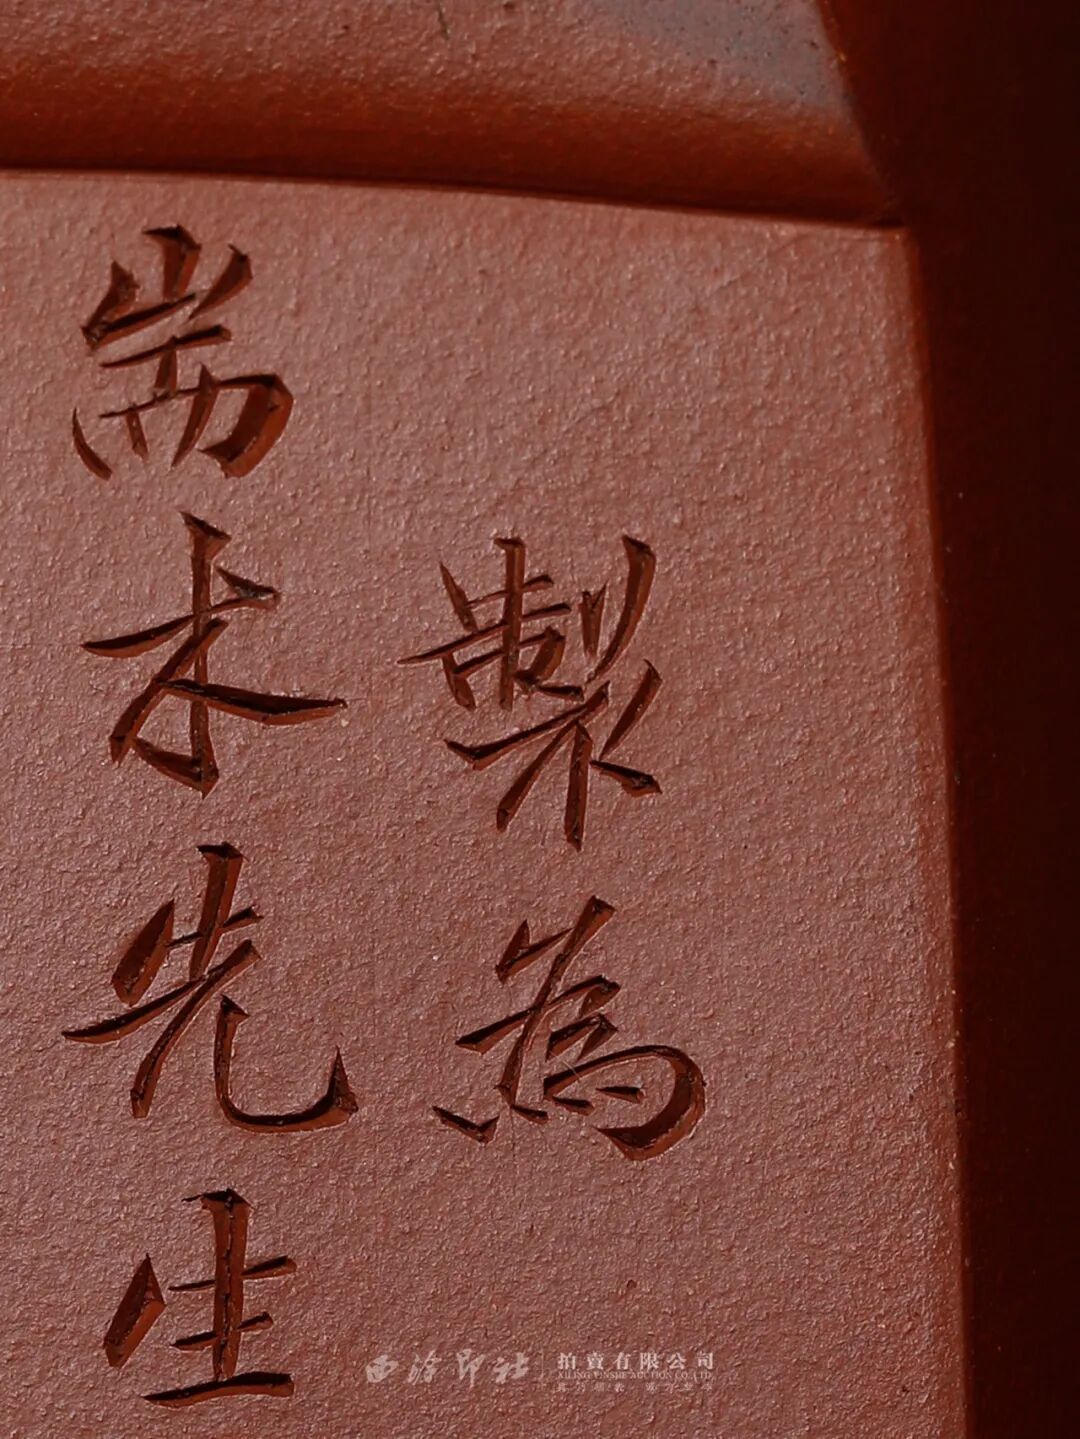 製為
耑木先生
西泠印社
拍賣有限公司
XILING YINSHE AUCTION CO.,LTD.